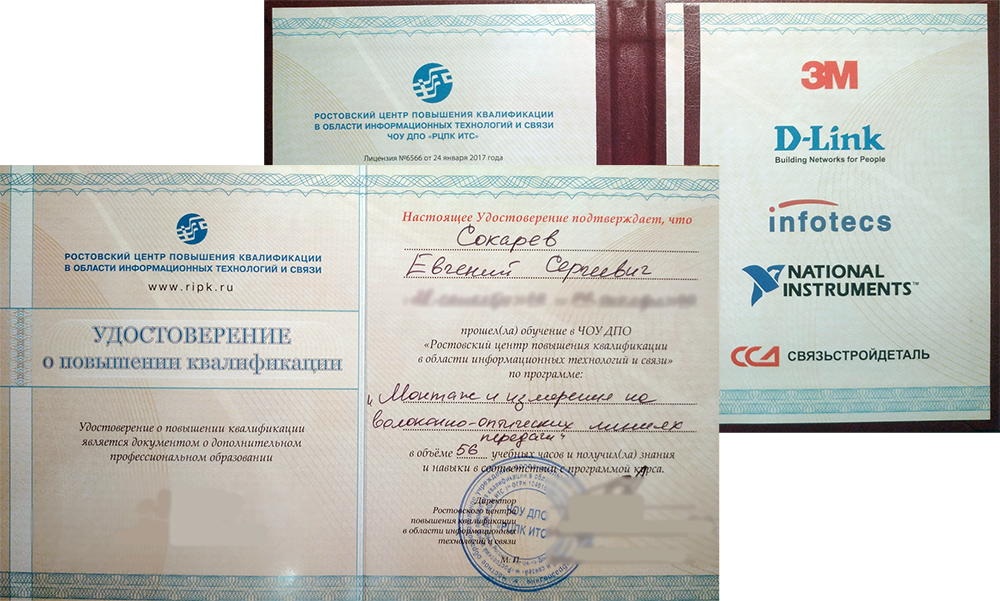 РОСТОВСКИЙ ЦЕНТР ПОВЫШЕНИЯ КВАЛИФИКАЦИИ
В ОБЛАСТИ ИНФОРМАЦИОННЫХ ТЕХНОЛОГИЙ И СВЯЗИ
ЧОУ ДПО «РЦПК ИТС»
Лицензия №6566 от 24 января 2017 года
3M
D-Link
Building Networks for People
infotecs
NATIONAL
INSTRUMENTS™
ССД СВЯЗЬСТРОЙДЕТАЛЬ
РОСТОВСКИЙ ЦЕНТР ПОВЫШЕНИЯ КВАЛИФИКАЦИИ
В ОБЛАСТИ ИНФОРМАЦИОННЫХ ТЕХНОЛОГИЙ И СВЯЗИ
www.ripk.ru
УДОСТОВЕРЕНИЕ
о повышении квалификации
Удостоверение о повышении квалификации
является документом о дополнительном
профессиональном образовании
Настоящее Удостоверение подтверждает, что
Сокарев
Евгений Сергеевич
прошел(ла) обучение в ЧОУ ДПО
«Ростовский центр повышения квалификации
в области информационных технологий и связи»
по программе:
„Монтаж и измерение на
волоконно-оптических линиях
передачи"
в объёме 56 учебных часов и получил(ла) знания
и навыки в соответствии с программой курса.
Директор
Ростовского центра
повышения квалификации
в области информационных
технологий и связи
М. П.
ЧОУ ДПО
"РЦПК ИТС"